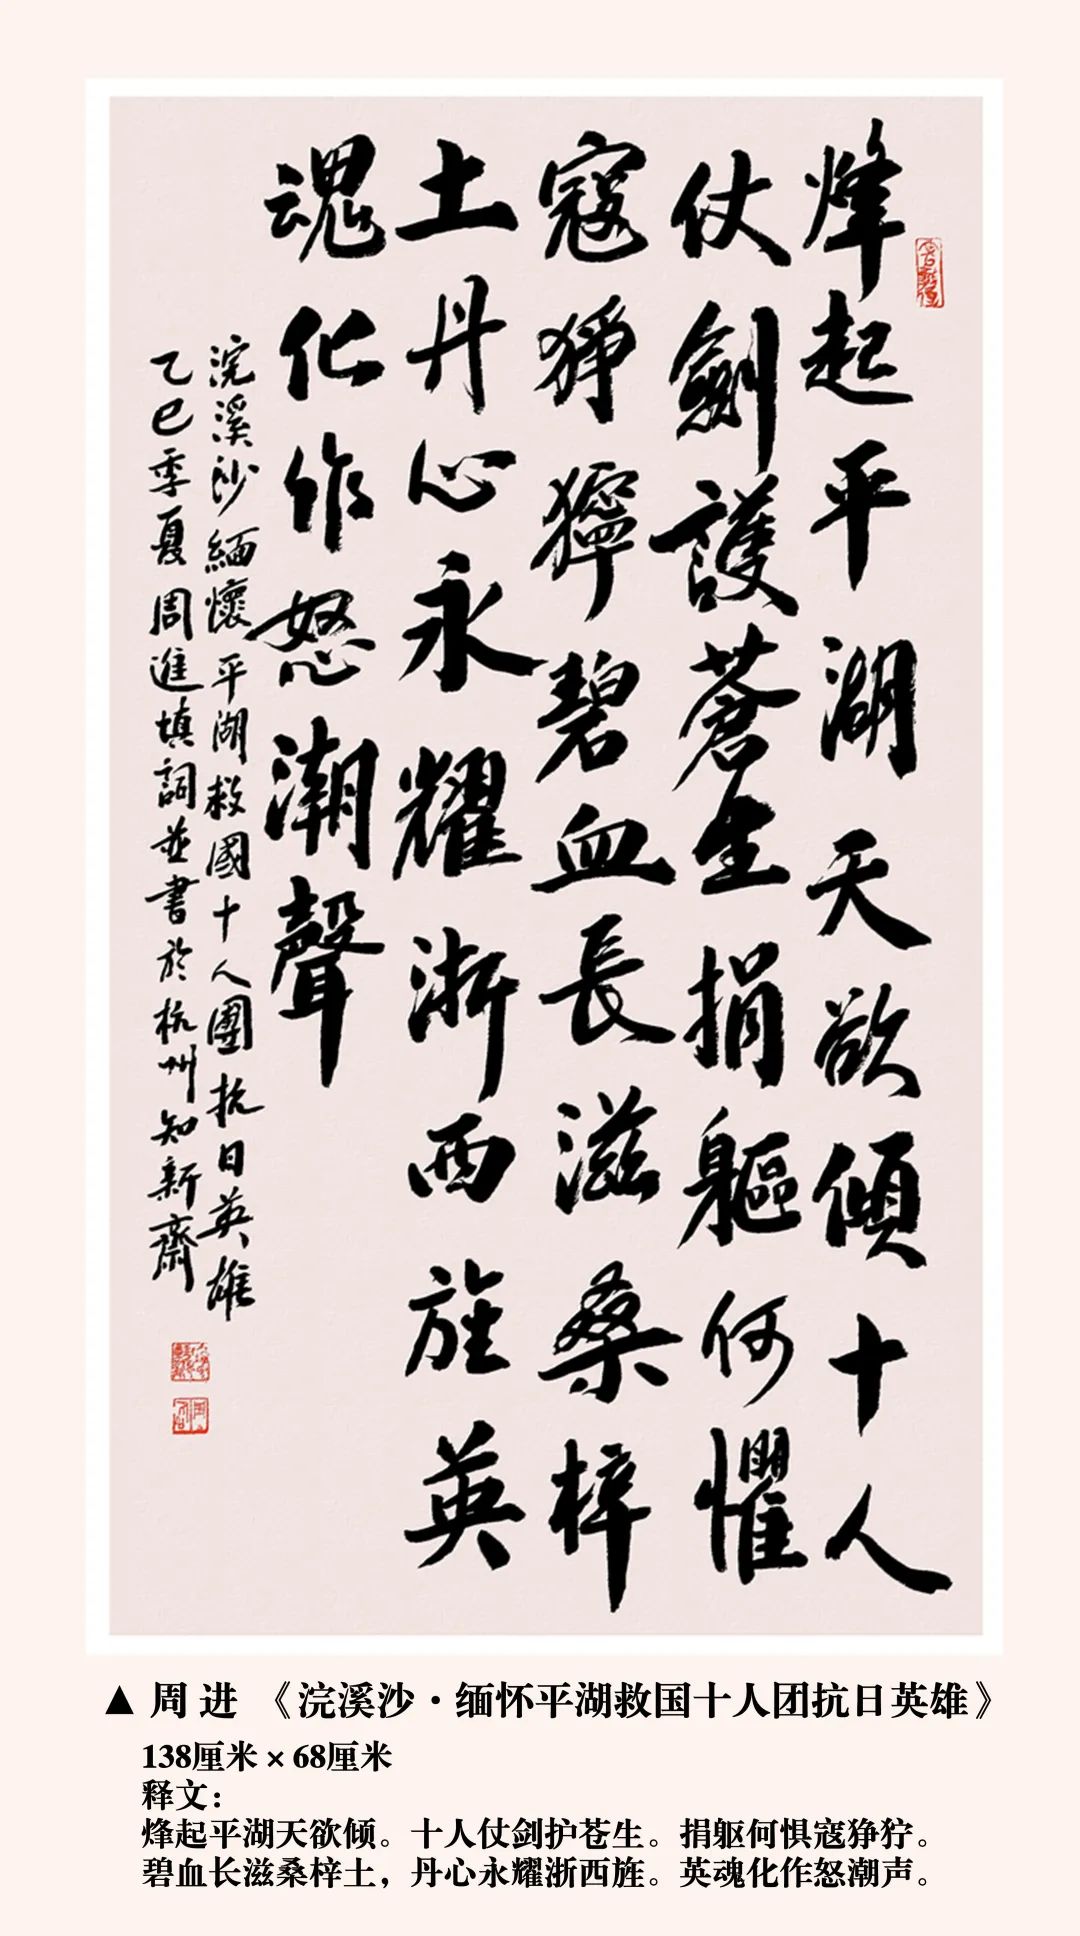 烽起平湖天欲傾十人
仗劍護蒼生捐軀何懼
寇猙獰碧血長滋桑梓
土丹心永耀浙西旌英
魂化作怒潮聲
浣溪沙緬懷平湖救國十人團抗日英雄
乙巳季夏周進填詞並書於杭州知新齋
▲ 周 进 《浣溪沙·缅怀平湖救国十人团抗日英雄》
138厘米 × 68厘米
释文：
烽起平湖天欲倾。十人仗剑护苍生。捐躯何惧寇狰狞。
碧血长滋桑梓土，丹心永耀浙西旌。英魂化作怒潮声。